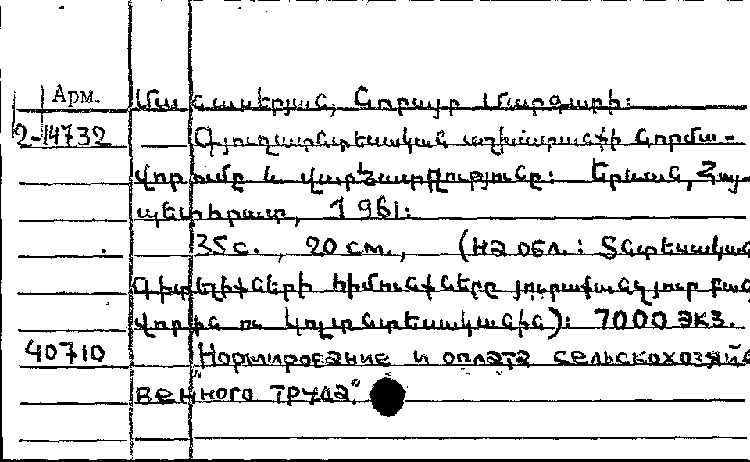 Арм.
Մանասերյան, Նորայր Մարգարի:
2-14732
Գյուղատնտեսական աշխատանքի նորմա-
վորումը և վարձատրությունը: Երևան, Հայ-
պետհրատ, 1961:
35с., 20 см., (на обл.: Տնտեսական
Գիտելիքների հիմունքները յուրաքանչյուր բան
վորին ու կոլտնտեսականին): 7000 экз.
40710
"Нормирование и оплата сельскохозяйс
венного труда".